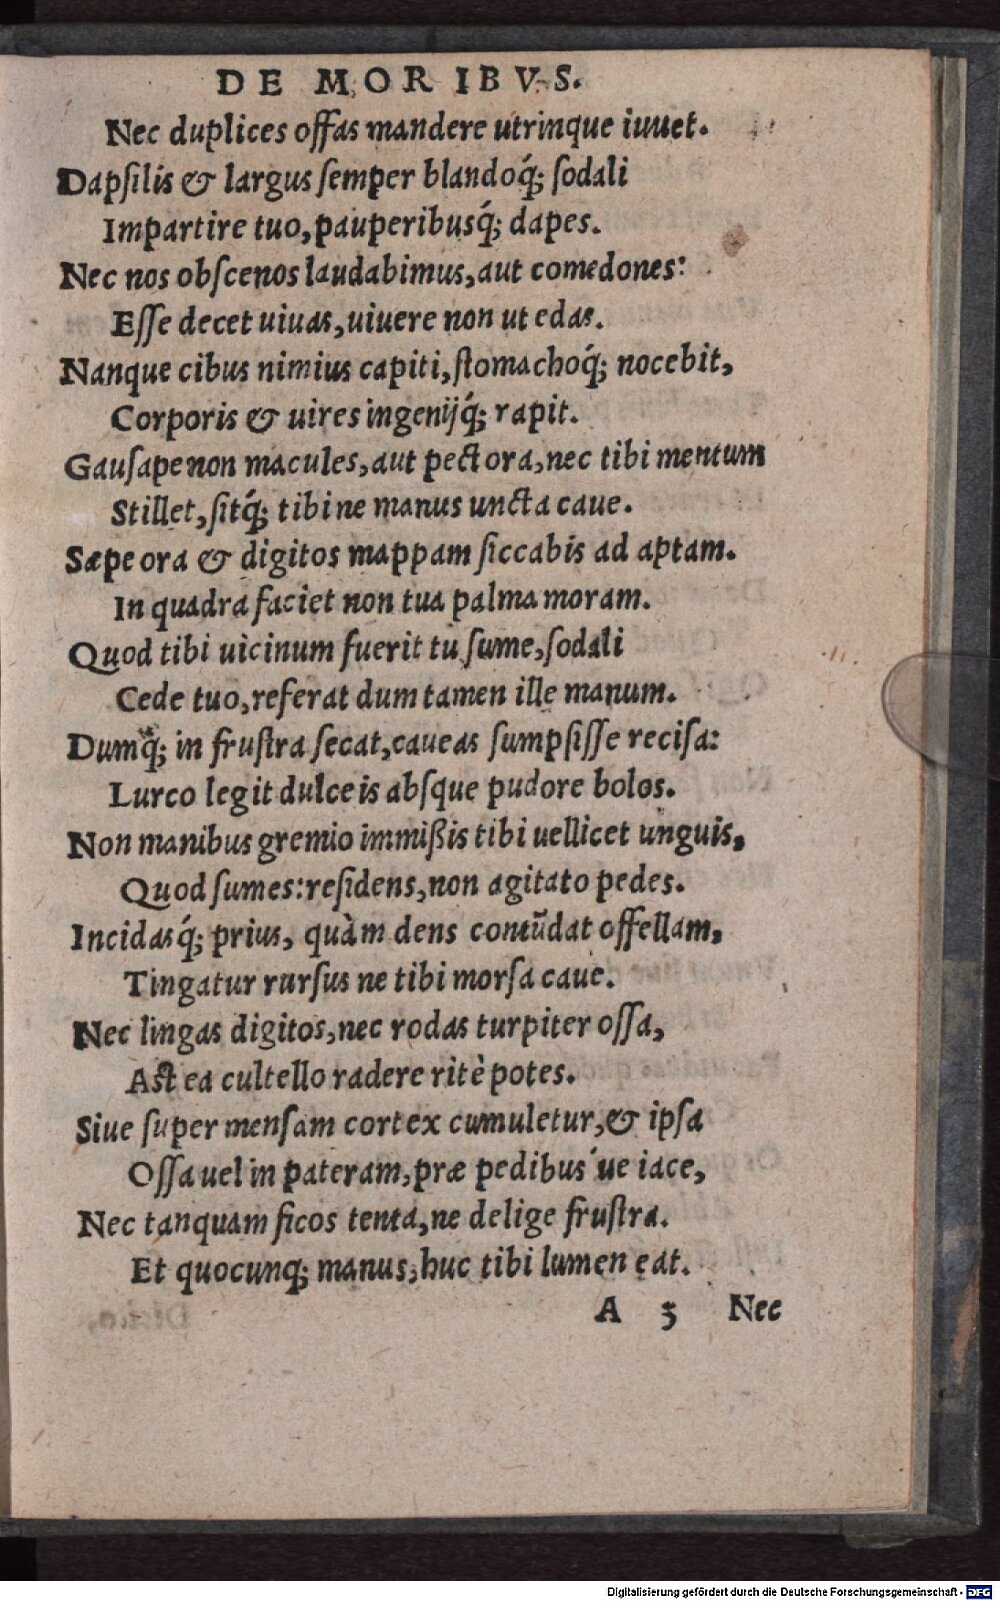 DE MORIBVS.
Nec duplices offas mandere utrinque iuuet.
Dapſilis & largus ſemper blandoq́; ſodali
Impartire tuo, pauperibusq́; dapes.
Nec nos obſcenos laudabimus, aut comedones:
Eſſe decet uiuas, uiuere non ut edas.
Nanque cibus nimius capiti, ſtomachoq́; nocebit,
Corporis & uires ingenijq́; rapit.
Gauſape non macules, aut pectora, nec tibi mentum
Stillet, ſitq́; tibi ne manus uncta caue.
Sæpe ora & digitos mappam ſiccabis ad aptam.
In quadra faciet non tua palma moram.
Quod tibi uicinum fuerit tu ſume, ſodali
Cede tuo, referat dum tamen ille manum.
Dumq́; in fruſtra ſecat, caueas ſumpſiſſe reciſa:
Lurco legit dulceis abſque pudore bolos.
Non manibus gremio immißis tibi uellicet unguis,
Quod ſumes: reſidens, non agitato pedes.
Incidasq́; prius, quàm dens contūdat offellam,
Tingatur rurſus ne tibi morſa caue.
Nec lingas digitos, nec rodas turpiter oſſa,
Aſt ea cultello radere ritè potes.
Siue ſuper menſam cortex cumuletur, & ipſa
Oſſa uel in pateram, præ pedibus´ue iace,
Nec tanquam ficos tenta, ne delige fruſtra.
Et quocunq; manus, huc tibi lumen eat.
A 3 Nec
Digitalisierung gefördert durch die Deutsche Forschungsgemeinschaft - DFG